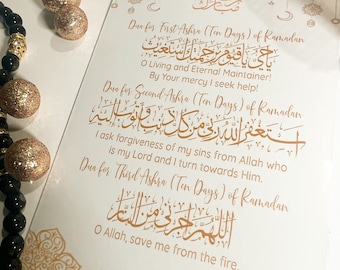 Dua for First Ashra (Ten Days) of Ramadan
يا حي يا قيوم برحمتك أستغيث
O Living and Eternal Maintainer!
By Your mercy I seek help!
Dua for Second Ashra (Ten Days) of Ramadan
أستغفر الله ربي من كل ذنب وأتوب إليه
I ask forgiveness of my sins from Allah who
is my Lord and I turn towards Him.
Dua for Third Ashra (Ten Days) of Ramadan
اللهم أجرني من النار
O Allah, save me from the fire